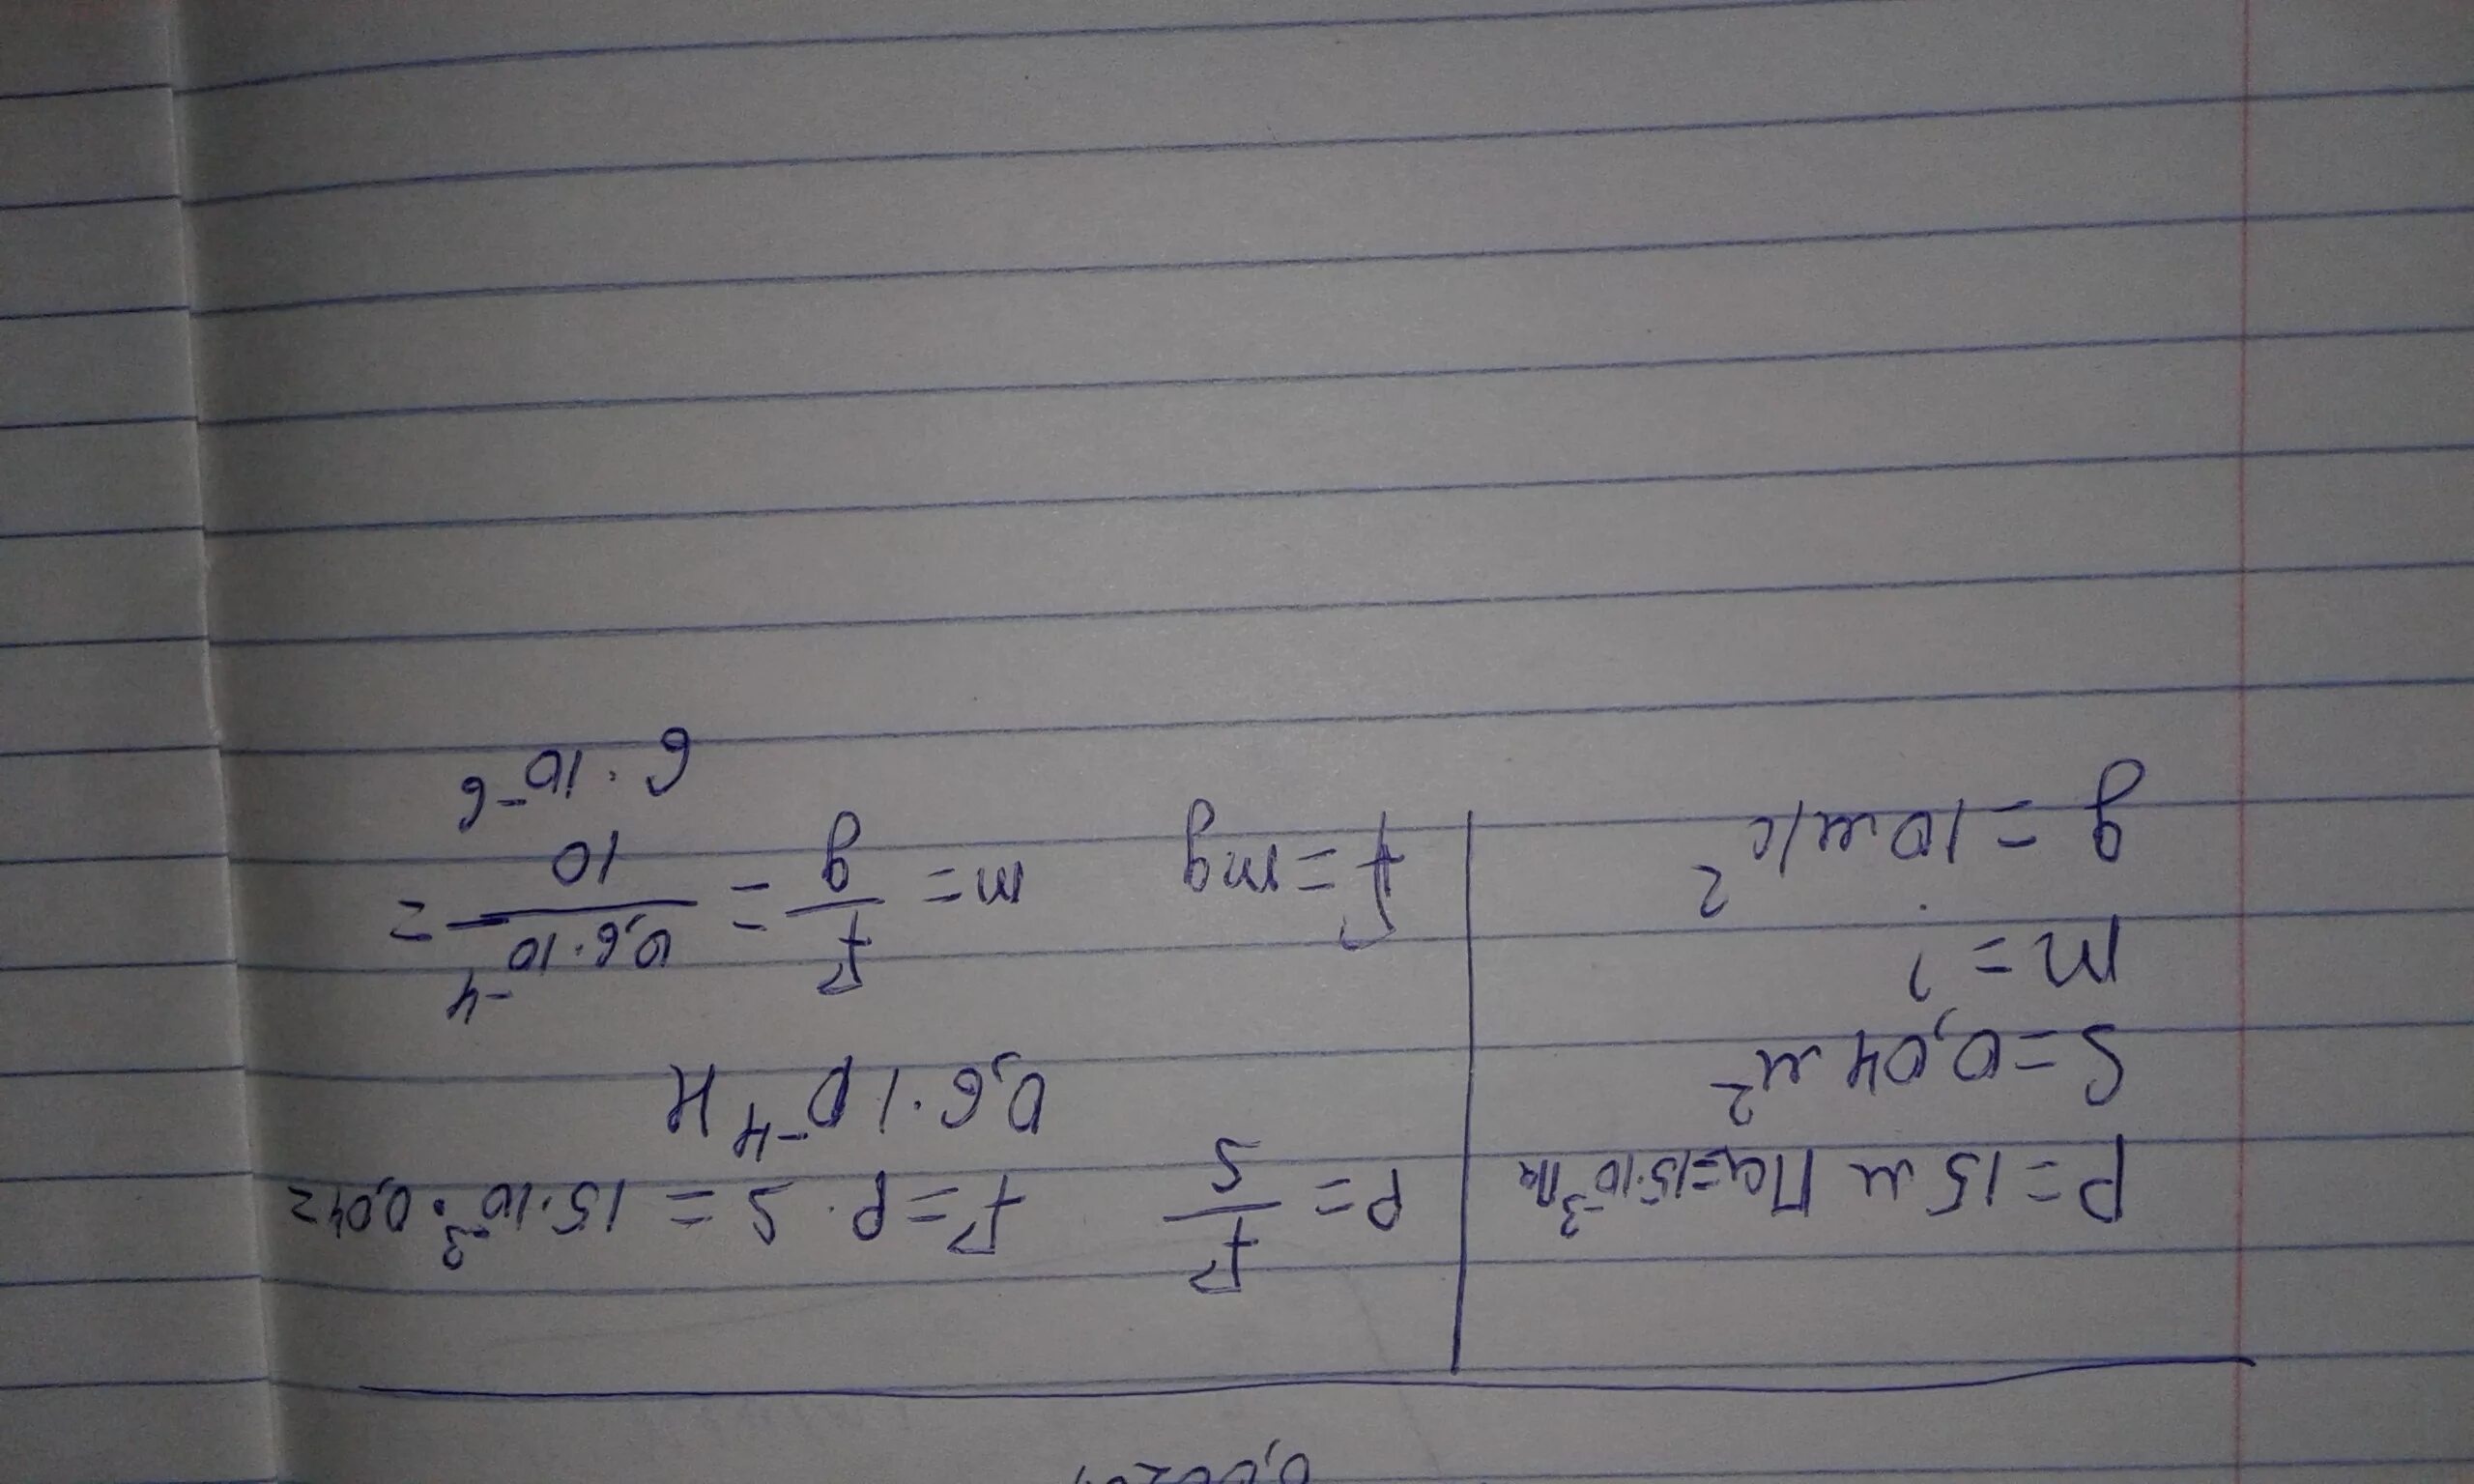 P = 15 м Па = 15·10⁻³ Па
S = 0,04 м²
m = ?
g = 10 м/с²
P = F/S F = P · S = 15·10⁻³ · 0,04 =
0,6·10⁻⁴ Н
F = mg m = F/g = 0,6·10⁻⁴/10 =
6·10⁻⁶